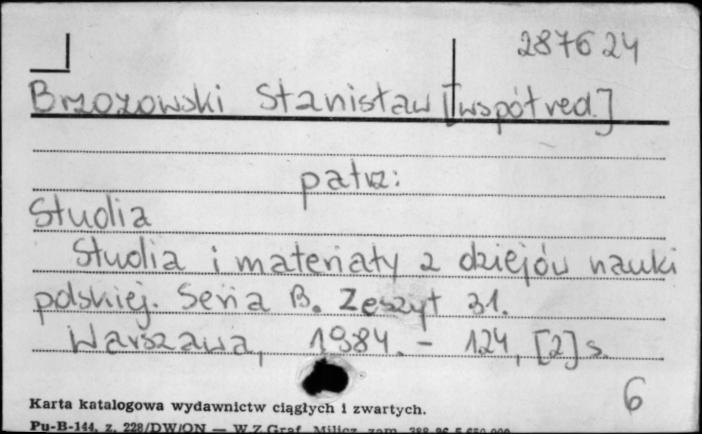 287624
Brzozowski Stanisław [współred.]
patrz:
Studia
Studia i materiały z dziejów nauki
polskiej. Seria B. Zeszyt 31.
Warszawa, 1984. - 124, [2] s.
6
Karta katalogowa wydawnictw ciągłych i zwartych.
Pu-B-144, z. 228/DW/ON — W.Z.Graf. Milicz, zam.